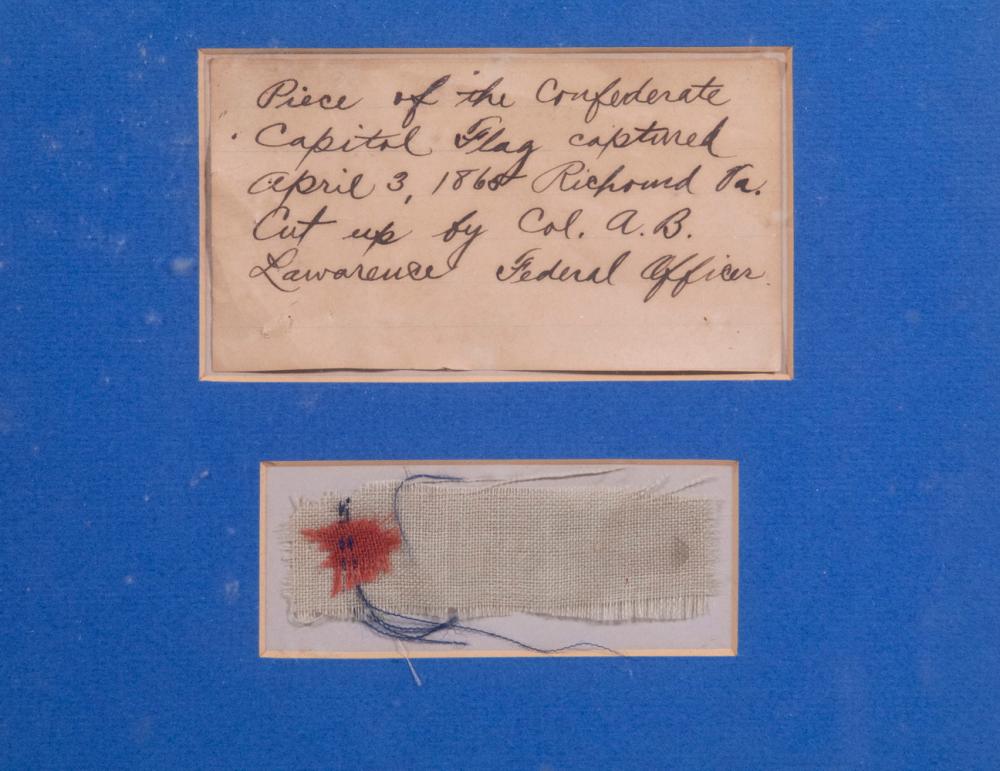 Piece of the Confederate
Capitol Flag captured
April 3, 1865 Richomd Va.
Cut up by Col. A. B.
Lawarence Federal Officer.